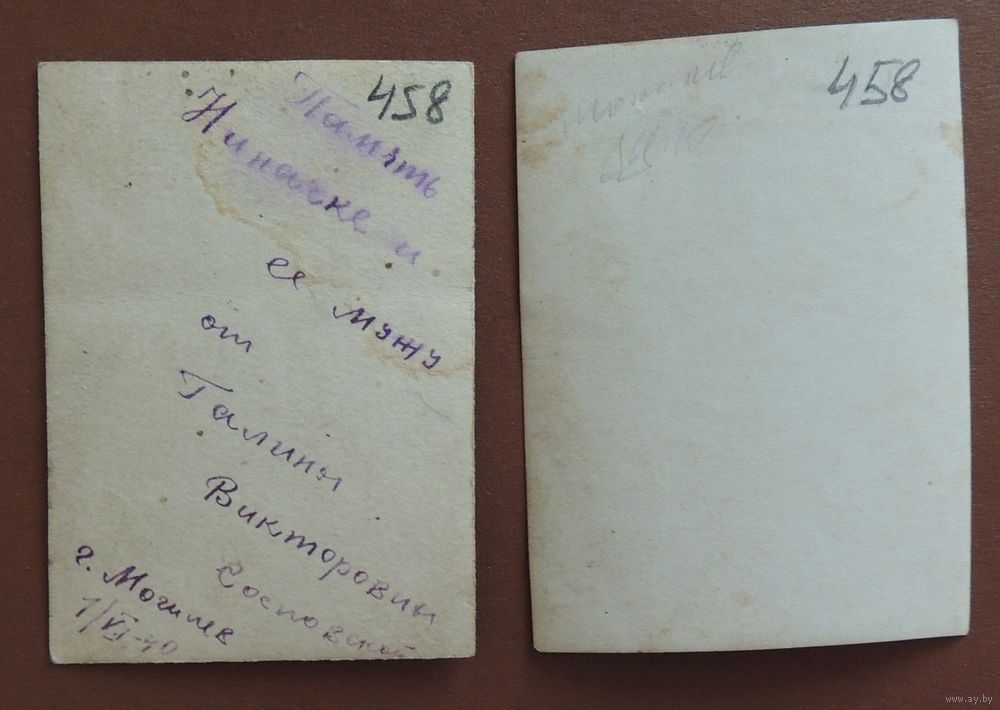 458
Память
Ниночке и
ея мужу
от
Галины
Викторовны
Сосновской
г. Могилев
1/VI-40
458
www.ay.by